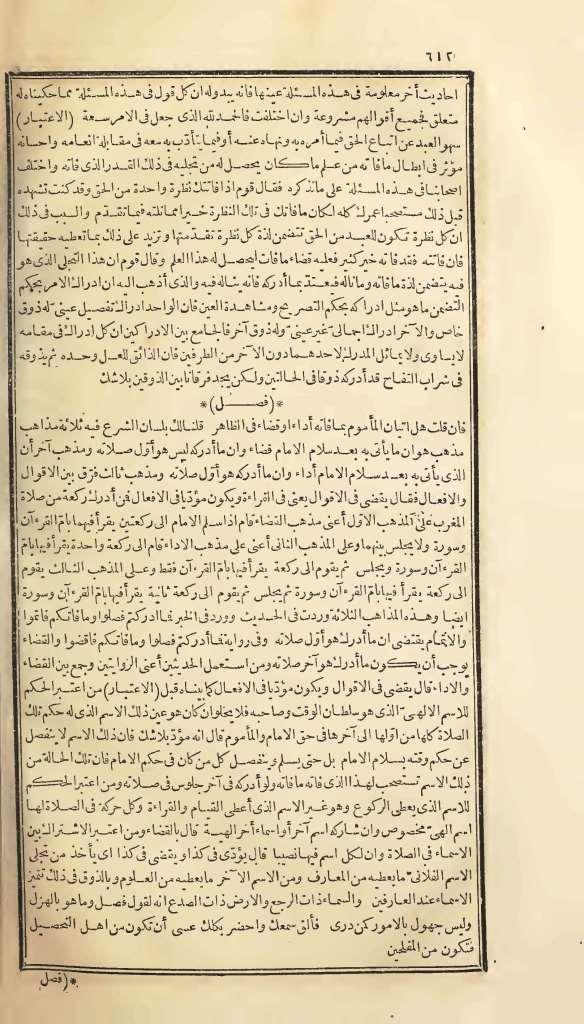 ٦١٢
احاديث أخر معلومة فى هذه المسئلة عينها فانه يبدوله ان كل قول فى هذه المسئلة مما حكيناه له
متعلق فجميع أقوالهم مشروعة وان اختلفت فالحمد لله الذى جعل فى الامر سعة (الاعتبار)
سهو العبد عن اتباع الحق فيما أمره به ونهاه عنه أو فيما يتأدب به معه فى مقابلة انعامه واحسانه
مؤثر فى ابطال ما فاته من علم ما كان يحصل له من تجليه فى ذلك القدر الذى فاته واختلف
اصحابنا فى هذه المسئلة على ما نذكره فقال قوم اذا فاتتك نظرة واحدة من الحق وقد كنت تشهده
قبل ذلك مستصحبا عمرك كله لكان ما فاتك فى تلك النظرة خيرا مما نلته فيما تقدّم والسبب فى ذلك
ان كل نظرة تكون للعبد من الحق تتضمن لذة كل نظرة تقدّمتها وتزيد على ذلك بما تعطيه حقيقتها
فان فاتته فقد فاته خير كثير فعليه قضاء ما فات ليحصل له هذا العلم وقال قوم ان هذا التجلى الذى هو
فيه يتضمن لذة ما فاته وما ناله فيعتدّ بما أدركه فانه يناله فيه والذى أذهب اليه ان ادراك الامر بحكم
التضمن ما هو مثل ادراكه بحكم التصريح ومشاهدة العين فان الواحد ادراك تفصيل عينىّ له ذوق
خاص والآخر ادراك اجمالى غير عينىّ وله ذوق آخر فالجامع بين الادراكين ان كل ادراك فى مقامه
لا يساوى ولا يماثل المدرك لاحدهما دون الآخر من الطرفين فان الذائق للعسل وحده ثم يذوقه
فى شراب التفاح قد أدركه ذوقا فى الحالتين ولكن يجد فرقانا بين الذوقين بلا شك
*(فصــل)*
فان قلت هل اتيان المأموم بما فاته أداء أو قضاء فى الظاهر قلنا لك بلسان الشرع فيه ثلاثة مذاهب
مذهب هو ان ما يأتى به بعد سلام الامام قضاء وان ما أدركه ليس هو أوّل صلاته ومذهب آخر أن
الذى يأتى به بعد سلام الامام أداء وان ما أدركه هو أوّل صلاته ومذهب ثالث فرّق بين الاقوال
والافعال فقال يقضى فى الاقوال يعنى فى القراءة ويكون مؤدّيا فى الافعال فمن أدرك ركعة من صلاة
المغرب على المذهب الاوّل أعنى مذهب القضاء قام اذا سلم الامام الى ركعتين يقرأ فيهما بامّ القرءان
وسورة ولا يجلس بينهما وعلى المذهب الثانى أعنى على مذهب الاداء قام الى ركعة واحدة يقرأ فيها بامّ
القرءان وسورة ويجلس ثم يقوم الى ركعة يقرأ فيها بامّ القرءان فقط وعلى المذهب الثالث يقوم
الى ركعة يقرأ فيها بامّ القرءان وسورة ثم يجلس ثم يقوم الى ركعة ثانية يقرأ فيها بامّ القرءان وسورة
ايضا وهذه المذاهب الثلاثة وردت فى الحديث وورد فى الخبر فما ادركتم فصلوا وما فاتكم فاتموا
والاتمام يقتضى ان ما أدرك هو أوّل صلاته وفى رواية فما أدركتم فصلوا وما فاتكم فاقضوا والقضاء
يوجب أن يكون ما أدرك هو آخر صلاته ومن استعمل الحديثين أعنى الروايتين وجمع بين القضاء
والاداء قال يقضى فى الاقوال ويكون مؤدّيا فى الافعال كما بيناه قبل (الاعتبار) من اعتبر الحكم
للاسم الالهىّ الذى هو سلطان الوقت وصاحبه فلا يخلوا ان كان هو عين ذلك الاسم الذى له حكم تلك
الصلاة كلها من اوّلها الى آخرها فى حق الامام والمأموم قال انه مؤدّ بلا شك فان ذلك الاسم لا ينفصل
عن حكم وقته بسلام الامام بل حتى يسلم وينفصل كل من كان فى حكم الامام فان تلك الحالة من
ذلك الاسم تستصحب لهذا الذى فاته ما فاته ولو أدركه فى آخر جلوس فى صلاته ومن اعتبر الحكم
للاسم الذى يعطى الركوع وهو غير الاسم الذى أعطى القيام والقراءة وكل حركة فى الصلاة لها
اسم الهىّ مخصوص وان شاركه اسم آخر أو اسماء أخر الهية قال بالقضاء ومن اعتبر الاشتراك بين
الاسماء فى الصلاة وان لكل اسم فيها نصيبا قال يؤدّى فى كذا ويقضى فى كذا اى يأخذ من تجلى
الاسم الفلانىّ ما يعطيه من المعارف ومن الاسم الآخر ما يعطيه من العلوم وبالذوق فى ذلك تتميز
الاسماء عند العارفين والسماء ذات الرجع والارض ذات الصدع انه لقول فصل وما هو بالهزل
وليس جهول بالامور كمن درى فألق سمعك واحضر بكلك عسى أن تكون من اهل التحصيل
فتكون من المفلحين
*(فصل